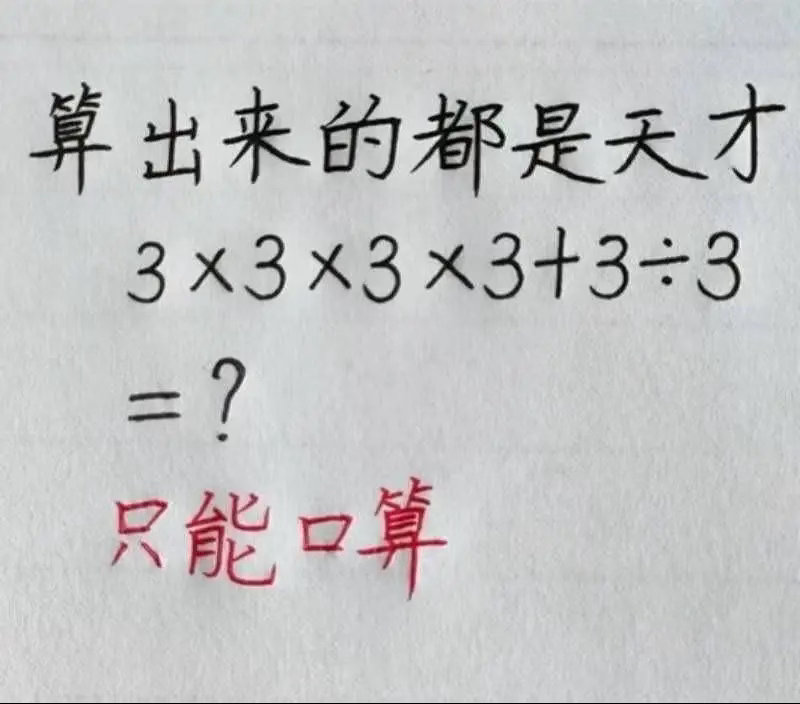 算出来的都是天才
3×3×3×3+3÷3
=?
只能口算